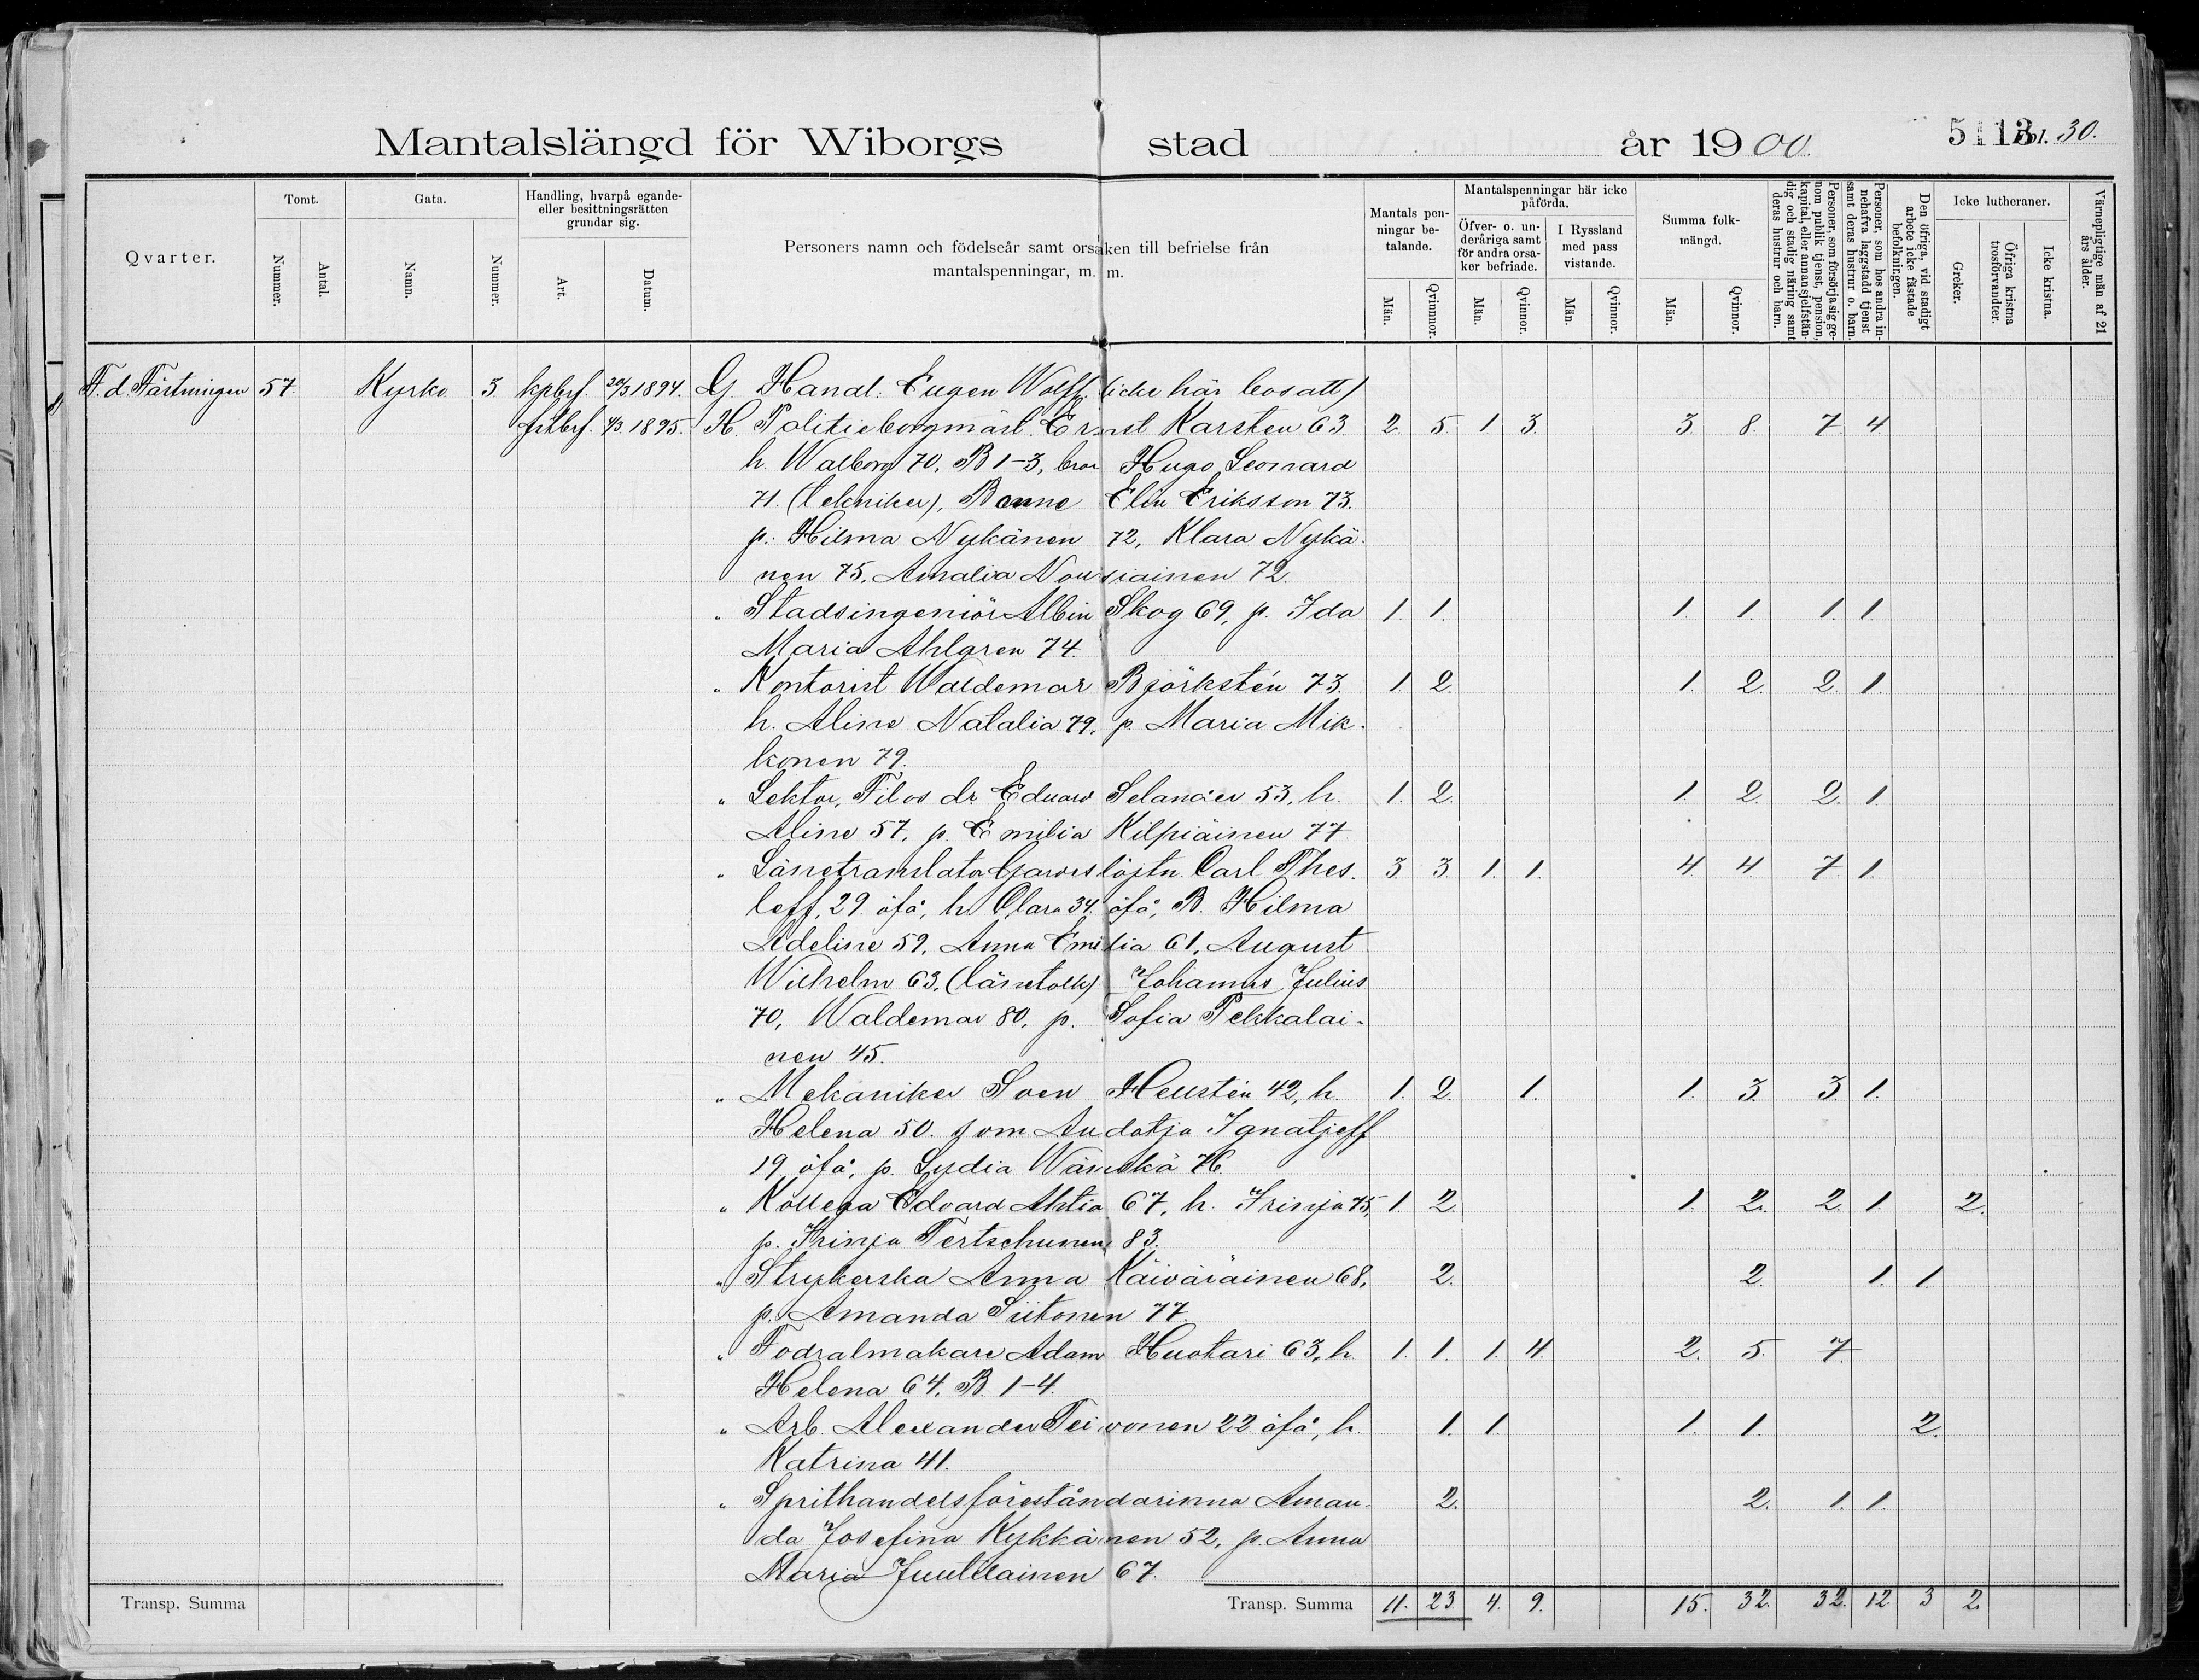 Mantalslängd för Wiborgs stad år 1900.
5113 Fol. 30.
Qvarter.
Tomt.
Nummer.
Antal.
Gata.
Namn.
Nummer.
Handling, hvarpå egande-
eller besittningsrätten
grundar sig.
Art.
Datum.
Personers namn och födelseår samt orsaken till befrielse från
mantalspenningar, m. m.
Mantals pen-
ningar be-
talande.
Män.
Qvinnor.
Mantalspenningar här icke
påförda.
Öfver- o. un-
deråriga samt
för andra orsa-
ker befriade.
Män.
Qvinnor.
I Ryssland
med pass
vistande.
Män.
Qvinnor.
Summa folk-
mängd.
Män.
Qvinnor.
Personer, som försörja sig ge-
nom publik tjenst, pension,
kapital, eller annan sjelfstän-
dig och stadig näring samt
deras hustrur och barn.
Personer, som hos andra in-
nehafva laggstadd tjenst
samt deras hustrur o. barn.
Den öfriga, vid stadigt
arbete icke fästade
befolkningen.
Icke lutheraner.
Greker.
Öfriga kristna
trosförvandter.
Icke kristna.
Värnepligtige män af 21
års ålder.
F. d. Fästningen 57. Kyrko. 3. kpbrf. 20/3 1894. G. Handl. Eugen Wolff (icke här bosatt)
fstbrf. 4/3. 1895. H. Politieborgmäst. Ernst Karsten 63. 2. 5. 1. 3. 3. 8. 7. 4.
h. Walborg 70. B 1-3, bror Hugo Leonard
71. (tekniker), Bonne Elin Eriksson 73.
p. Hilma Nykänen 72, Klara Nykä-
nen 75, Amalia Nousiainen 72.
" Stadsingeniör Albin Skog 69, p. Ida 1. 1. 1. 1. 1. 1.
Maria Ahlgren 74.
" Kontorist Waldemar Björkstén 73. 1. 2. 1. 2. 2. 1.
h. Aline Natalia 79, p. Maria Mik-
konen 79.
" Lektor, Filos dr Eduard Selander 53, h. 1. 2. 1. 2. 2. 1.
Aline 57, p. Emilia Kilpiäinen 77.
" Länetranslator Gardeslöjtn. Carl Thes- 3. 3. 1. 1. 4. 4. 7. 1.
leff, 29 öfå, h. Clara 34. öfå, B. Hilma
Adeline 59, Anna Emilia 61, August
Wilhelm 63, (länetolk) Johannes Julius
70, Waldemar 80, p. Sofia Pekkalai-
nen 45.
" Mekaniker Sven Heustén 42, h. 1. 2. 1. 1. 3. 3. 1.
Helena 50. som. Audotja Ignatjeff
19 öfå, p. Lydia Wänskä 76.
" Kollega Edvard Ahtia 67, h. Irinja 75, 1. 2. 1. 2. 2. 1. 2.
p. Irinja Tertschunen 83.
" Strykerska Anna Käiväräinen 68, 2. 2. 1. 1.
p. Amanda Siitonen 77.
" Fodralmakare Adam Huotari 63, h. 1. 1. 1. 4. 2. 5. 7.
Helena 64, B. 1-4.
" Arb. Alexander Teivonen 22 öfå, h. 1. 1. 1. 1. 2.
Katrina 41.
" Sprithandelsföreståndarinna Aman- 2. 2. 1. 1.
da Josefina Kykkänen 52, p. Anna
Maria Juutilainen 67.
Transp. Summa Transp. Summa 11. 23. 4. 9. 15. 32. 32. 12. 3 2.